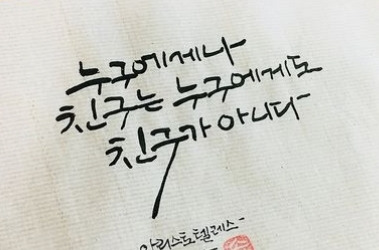 누구에게나
친구는 누구에게도
친구가 아니다
아리스토텔레스